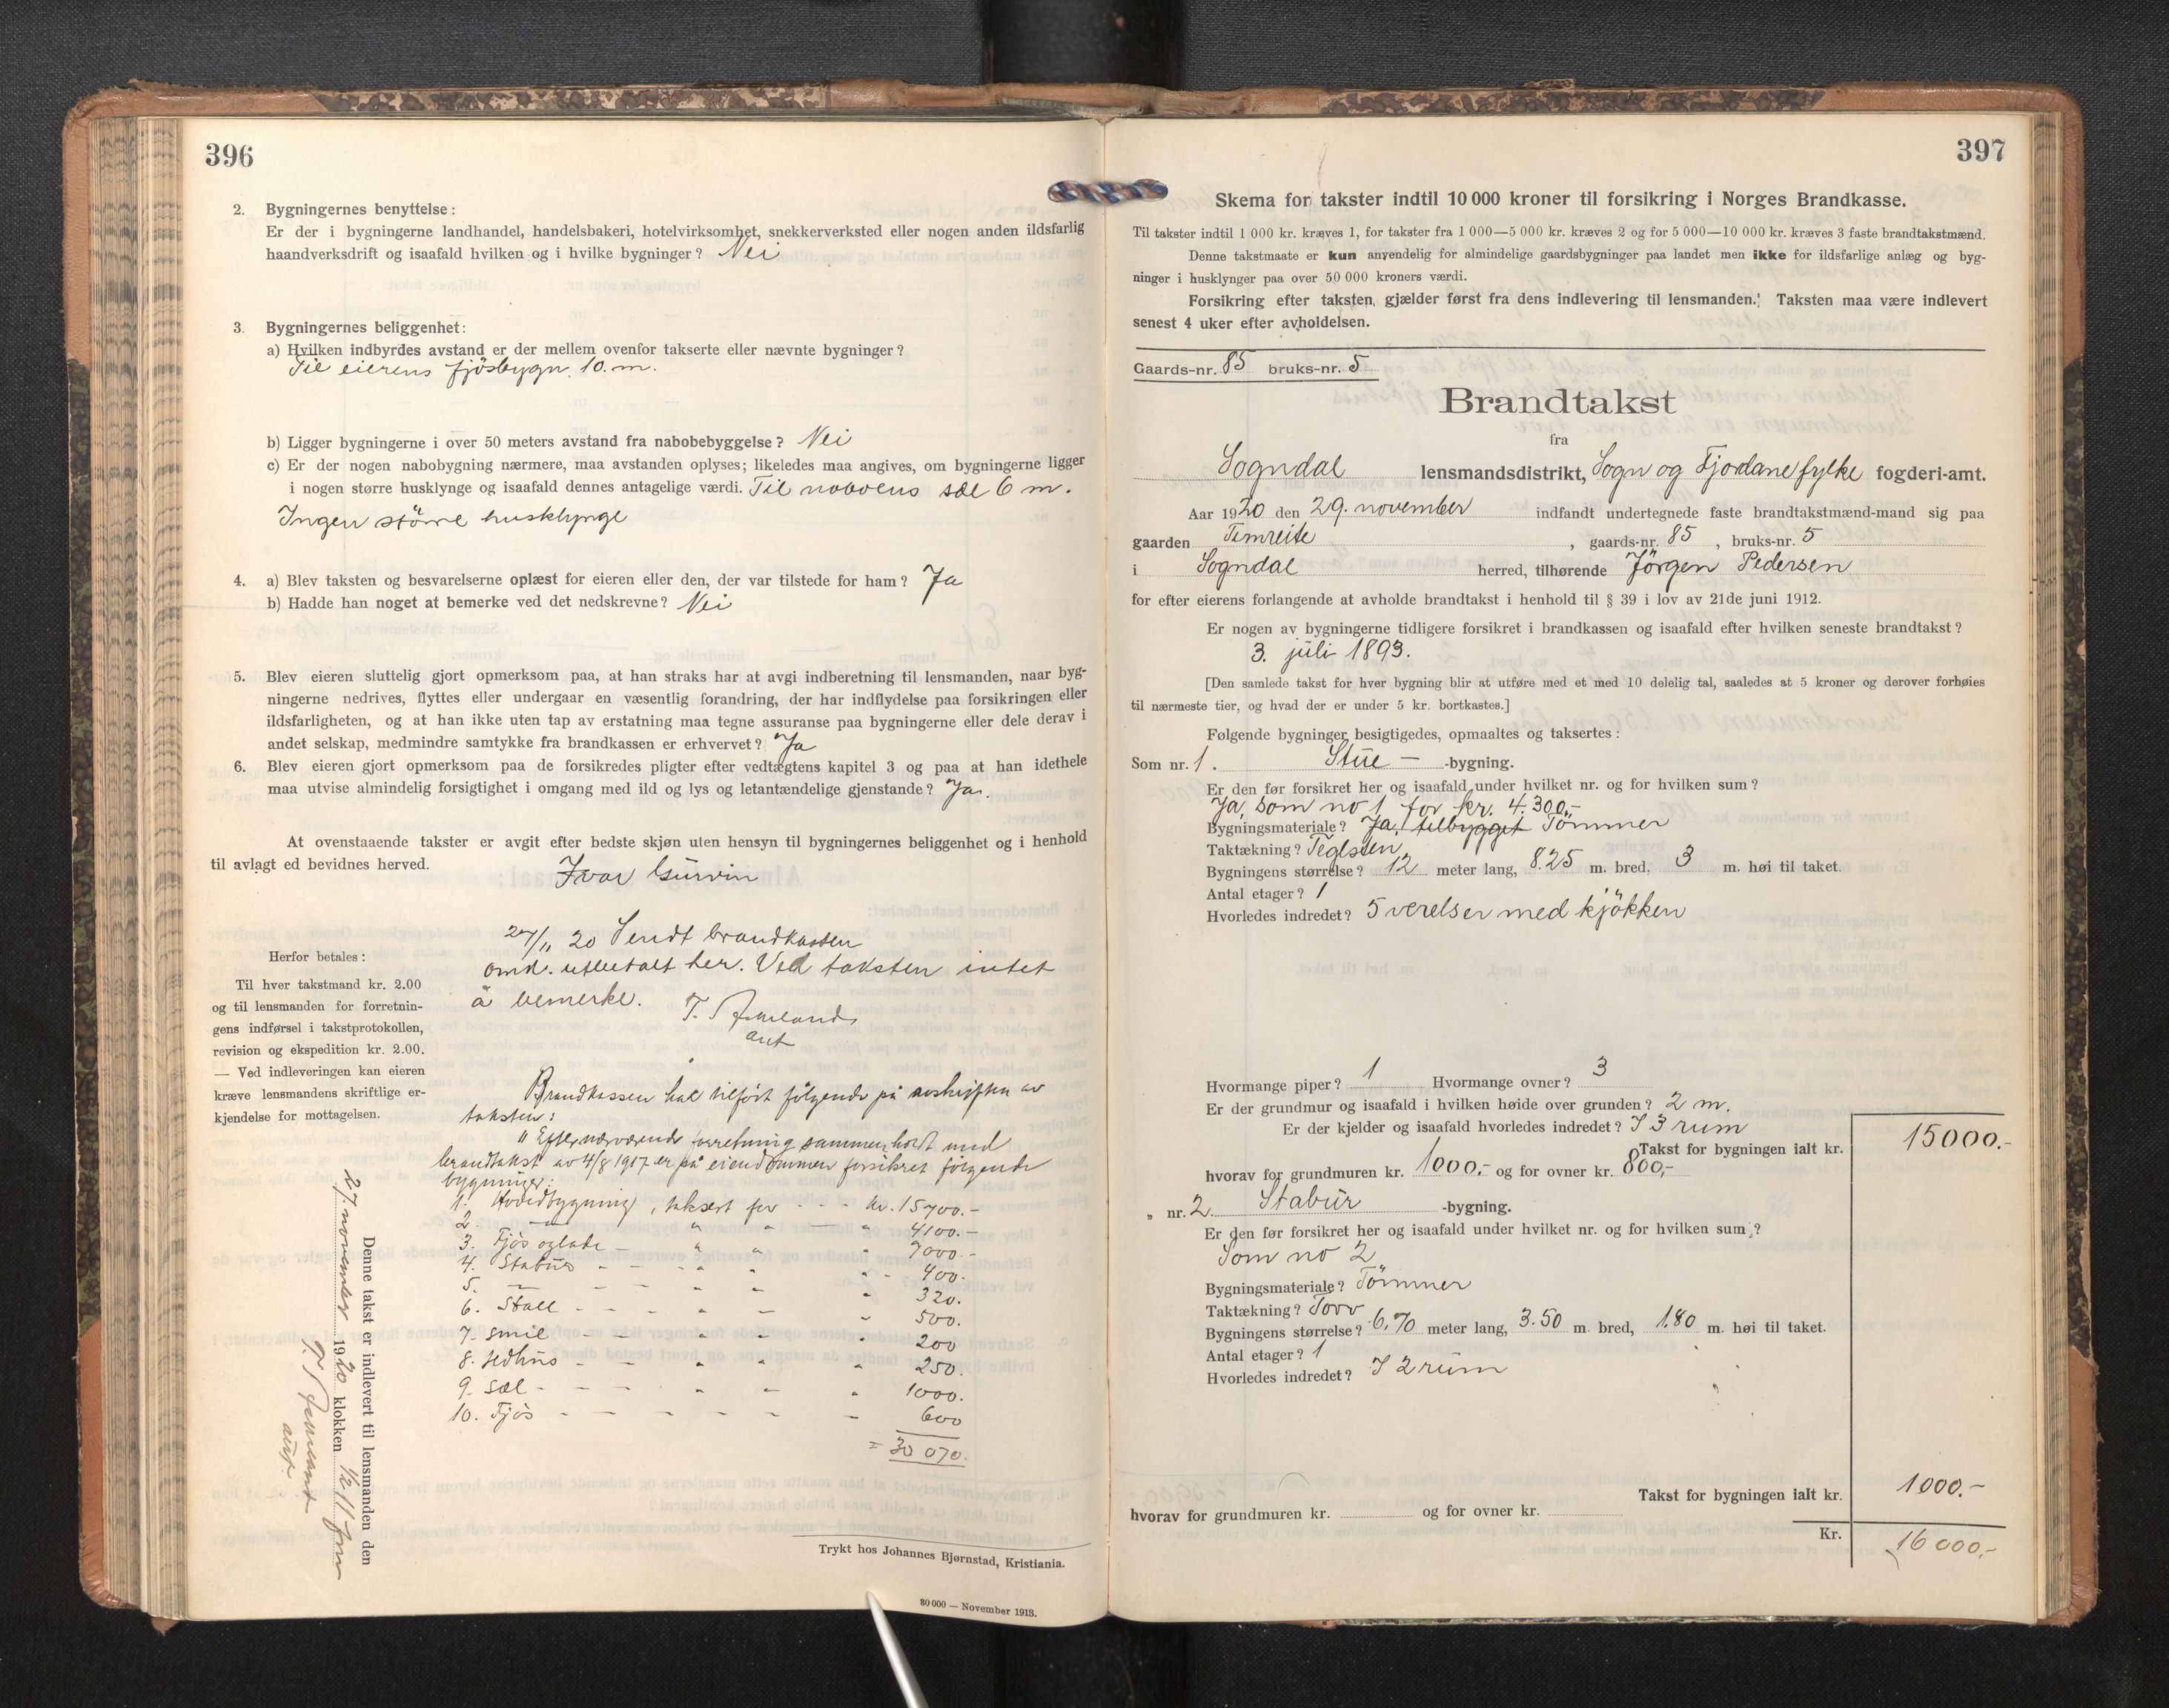 396
2. Bygningernes benyttelse:
Er der i bygningerne landhandel, handelsbakeri, hotelvirksomhet, snekkerverksted eller nogen anden ildsfarlig
haandverksdrift og isaafald hvilken og i hvilke bygninger? Nei
3. Bygningernes beliggenhet:
a) Hvilken indbyrdes avstand er der mellem ovenfor takserte eller nævnte bygninger?
Til eierens fjösbygn. 10. m.
b) Ligger bygningerne i over 50 meters avstand fra nabobebyggelse? Nei
c) Er der nogen nabobygning nærmere, maa avstanden oplyses; likeledes maa angives, om bygningerne ligger
i nogen større husklynge og isaafald dennes antagelige værdi. Til naboens sæl 6 m.
Ingen större husklynge
4. a) Blev taksten og besvarelserne oplæst for eieren eller den, der var tilstede for ham? Ja
b) Hadde han noget at bemerke ved det nedskrevne? Nei
5. Blev eieren sluttelig gjort opmerksom paa, at han straks har at avgi indberetning til lensmanden, naar byg-
ningerne nedrives, flyttes eller undergaar en væsentlig forandring, der har indflydelse paa forsikringen eller
ildsfarligheten, og at han ikke uten tap av erstatning maa tegne assuranse paa bygningerne eller dele derav i
andet selskap, medmindre samtykke fra brandkassen er erhvervet? Ja
6. Blev eieren gjort opmerksom paa de forsikredes pligter efter vedtægtens kapitel 3 og paa at han idethele
maa utvise almindelig forsigtighet i omgang med ild og lys og letantændelige gjenstande? Ja.
At ovenstaaende takster er avgit efter bedste skjøn uten hensyn til bygningernes beliggenhet og i henhold
til avlagt ed bevidnes herved.
Ivar Gurvin
27/11 20 Sendt brandkassen
omk. utbetalt her. Ved taksten intet
å bemerke.
T.
Herfor betales:
Til hver takstmand kr. 2.00
og til lensmanden for forretnin-
gens indførsel i takstprotokollen,
revision og ekspedition kr. 2.00.
— Ved indleveringen kan eieren
kræve lensmandens skriftlige er-
kjendelse for mottagelsen.
Brandkassen har tilfört fölgende på avskriften av
taksten:
"Efter nærværende forretning sammenholdt med
brandtakst av 4/8 1917 er på eiendommen forsikret fölgende
bygninger:
1. Hovedbygning, taksert for - - - kr. 15700.-
2. — " " " 4100.-
3. Fjös og lade - " " " 7000.-
4. Stabur - - " " " - 400.
5. — - - " " " 320.
6. Stall - - - " - " 500.
7. Smie - - " " 200
8. Vedhus - - " " " 250.
9. Sæl - - - " - " 1000.
10. Fjös - - - - - - 600
= 30 070.
Denne takst er indlevert til lensmanden den
27 november 1920 klokken 1/2 11 fom
Trykt hos Johannes Bjørnstad, Kristiania.
30 000 — November 1913.
397
Skema for takster indtil 10 000 kroner til forsikring i Norges Brandkasse.
Til takster indtil 1 000 kr. kræves 1, for takster fra 1 000—5 000 kr. kræves 2 og for 5 000—10 000 kr. kræves 3 faste brandtakstmænd.
Denne takstmaate er kun anvendelig for almindelige gaardsbygninger paa landet men ikke for ildsfarlige anlæg og byg-
ninger i husklynger paa over 50 000 kroners værdi.
Forsikring efter taksten gjælder først fra dens indlevering til lensmanden. Taksten maa være indlevert
senest 4 uker efter avholdelsen.
Gaards-nr. 85 bruks-nr. 5
Brandtakst
fra
Sogndal lensmandsdistrikt, Sogn og Fjordane fylke fogderi-amt.
Aar 1920 den 29. november indfandt undertegnede faste brandtakstmænd-mand sig paa
gaarden Timreite, gaards-nr. 85, bruks-nr. 5
i Sogndal herred, tilhørende Jörgen Pedersen
for efter eierens forlangende at avholde brandtakst i henhold til § 39 i lov av 21de juni 1912.
Er nogen av bygningerne tidligere forsikret i brandkassen og isaafald efter hvilken seneste brandtakst?
3. juli 1893.
[Den samlede takst for hver bygning blir at utføre med et med 10 delelig tal, saaledes at 5 kroner og derover forhøies
til nærmeste tier, og hvad der er under 5 kr. bortkastes.]
Følgende bygninger besigtigedes, opmaaltes og taksertes:
Som nr. 1. Stue — -bygning.
Er den før forsikret her og isaafald under hvilket nr. og for hvilken sum?
Ja, som no 1 for kr. 4.300,-
Bygningsmateriale? Ja, tilbygget Tömmer
Taktækning? Teglsten
Bygningens størrelse? 12 meter lang, 8.25 m. bred, 3 m. høi til taket.
Antal etager? 1
Hvorledes indredet? 5 værelser med kjökken
Hvormange piper? 1 Hvormange ovner? 3
Er der grundmur og isaafald i hvilken høide over grunden? 2 m.
Er der kjelder og isaafald hvorledes indredet? I 3 rum
Takst for bygningen ialt kr. 15000.-
hvorav for grundmuren kr. 1000.- og for ovner kr. 800,-
" nr. 2. Stabur -bygning.
Er den før forsikret her og isaafald under hvilket nr. og for hvilken sum?
Som no 2
Bygningsmateriale? Tömmer
Taktækning? Torv
Bygningens størrelse? 6,70 meter lang, 3.50 m. bred, 1.80 m. høi til taket.
Antal etager? 1
Hvorledes indredet? I 2 rum
Takst for bygningen ialt kr. 1000.-
hvorav for grundmuren kr. og for ovner kr.
Kr. 16000,-